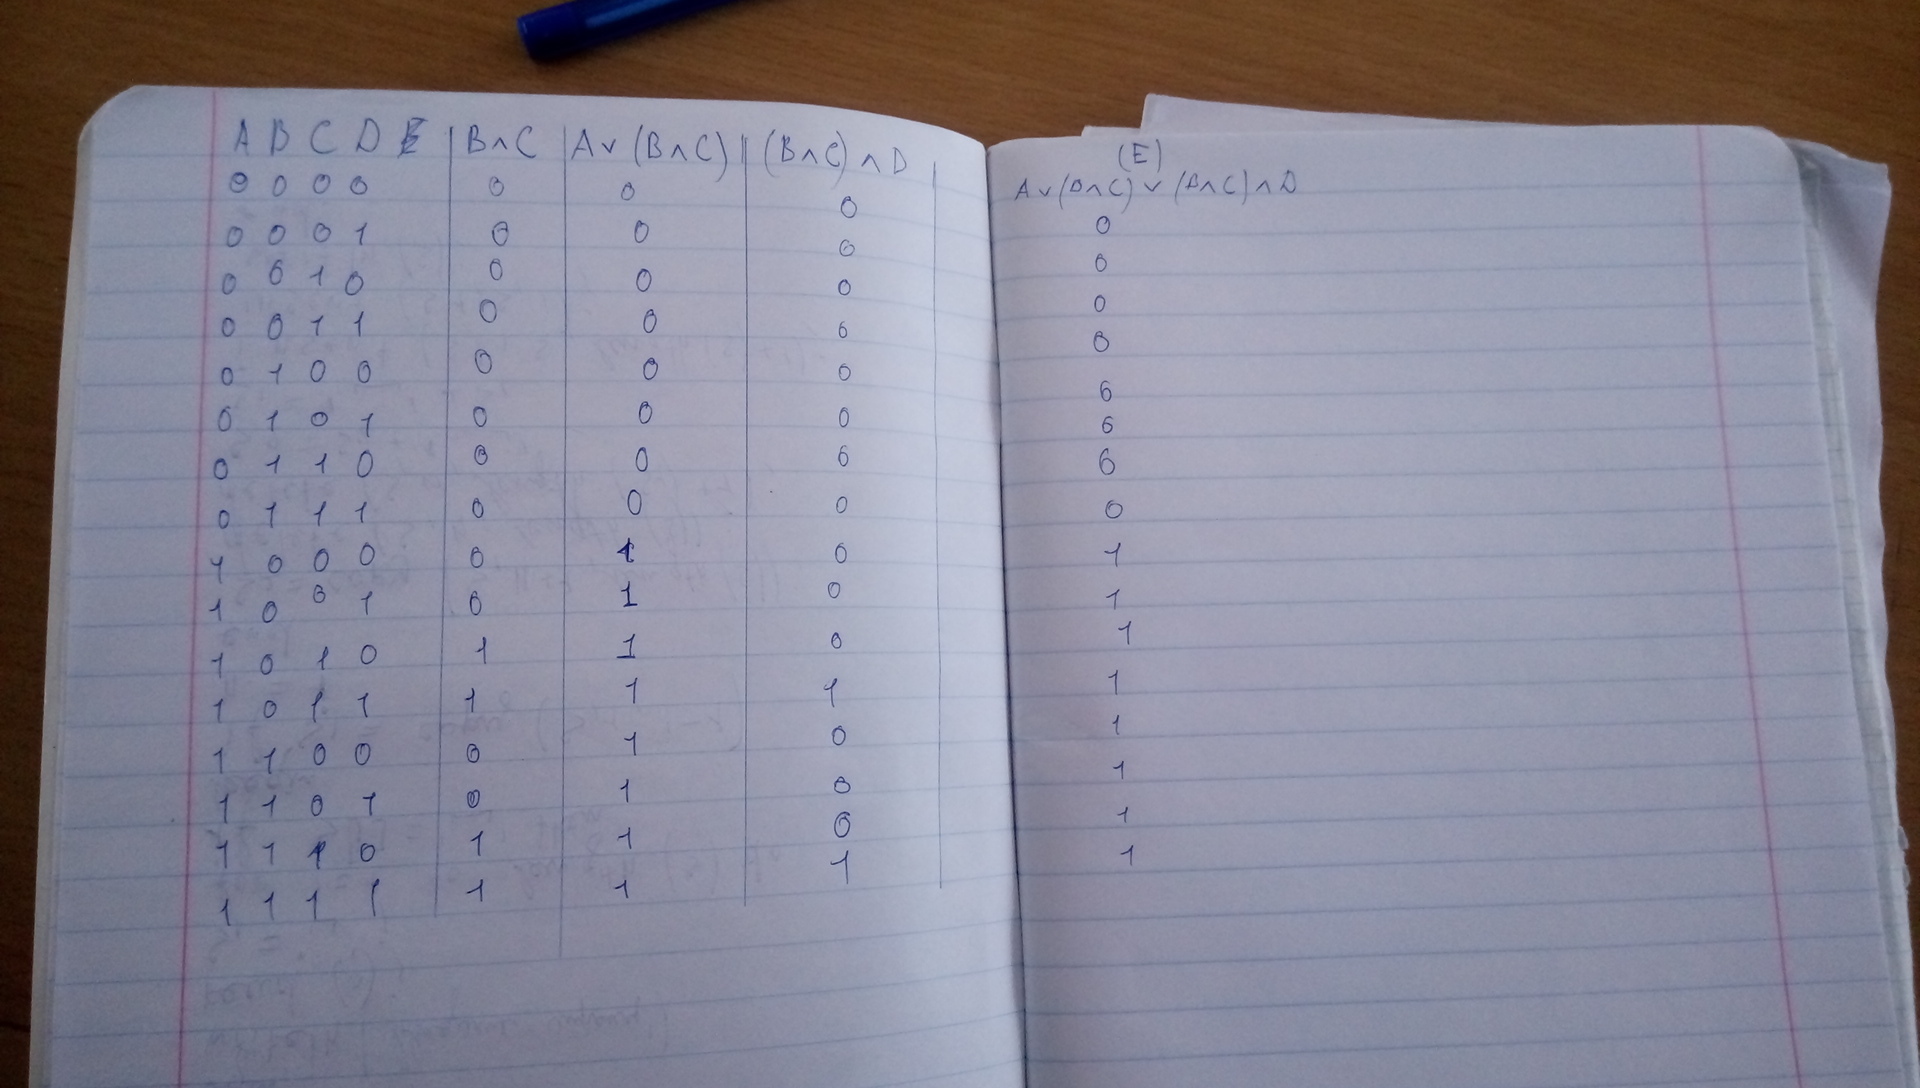 A B C D E B∧C A∨(B∧C) (B∧C)∧D (E)
A∨(B∧C)∨(B∧C)∧D
0 0 0 0 0 0 0 0
0 0 0 1 0 0 0 0
0 0 1 0 0 0 0 0
0 0 1 1 0 0 0 0
0 1 0 0 0 0 0 0
0 1 0 1 0 0 0 0
0 1 1 0 0 0 0 0
0 1 1 1 0 0 0 0
1 0 0 0 0 1 0 1
1 0 0 1 0 1 0 1
1 0 1 0 1 1 0 1
1 0 1 1 1 1 1 1
1 1 0 0 0 1 0 1
1 1 0 1 0 1 0 1
1 1 1 0 1 1 0 1
1 1 1 1 1 1 1 1